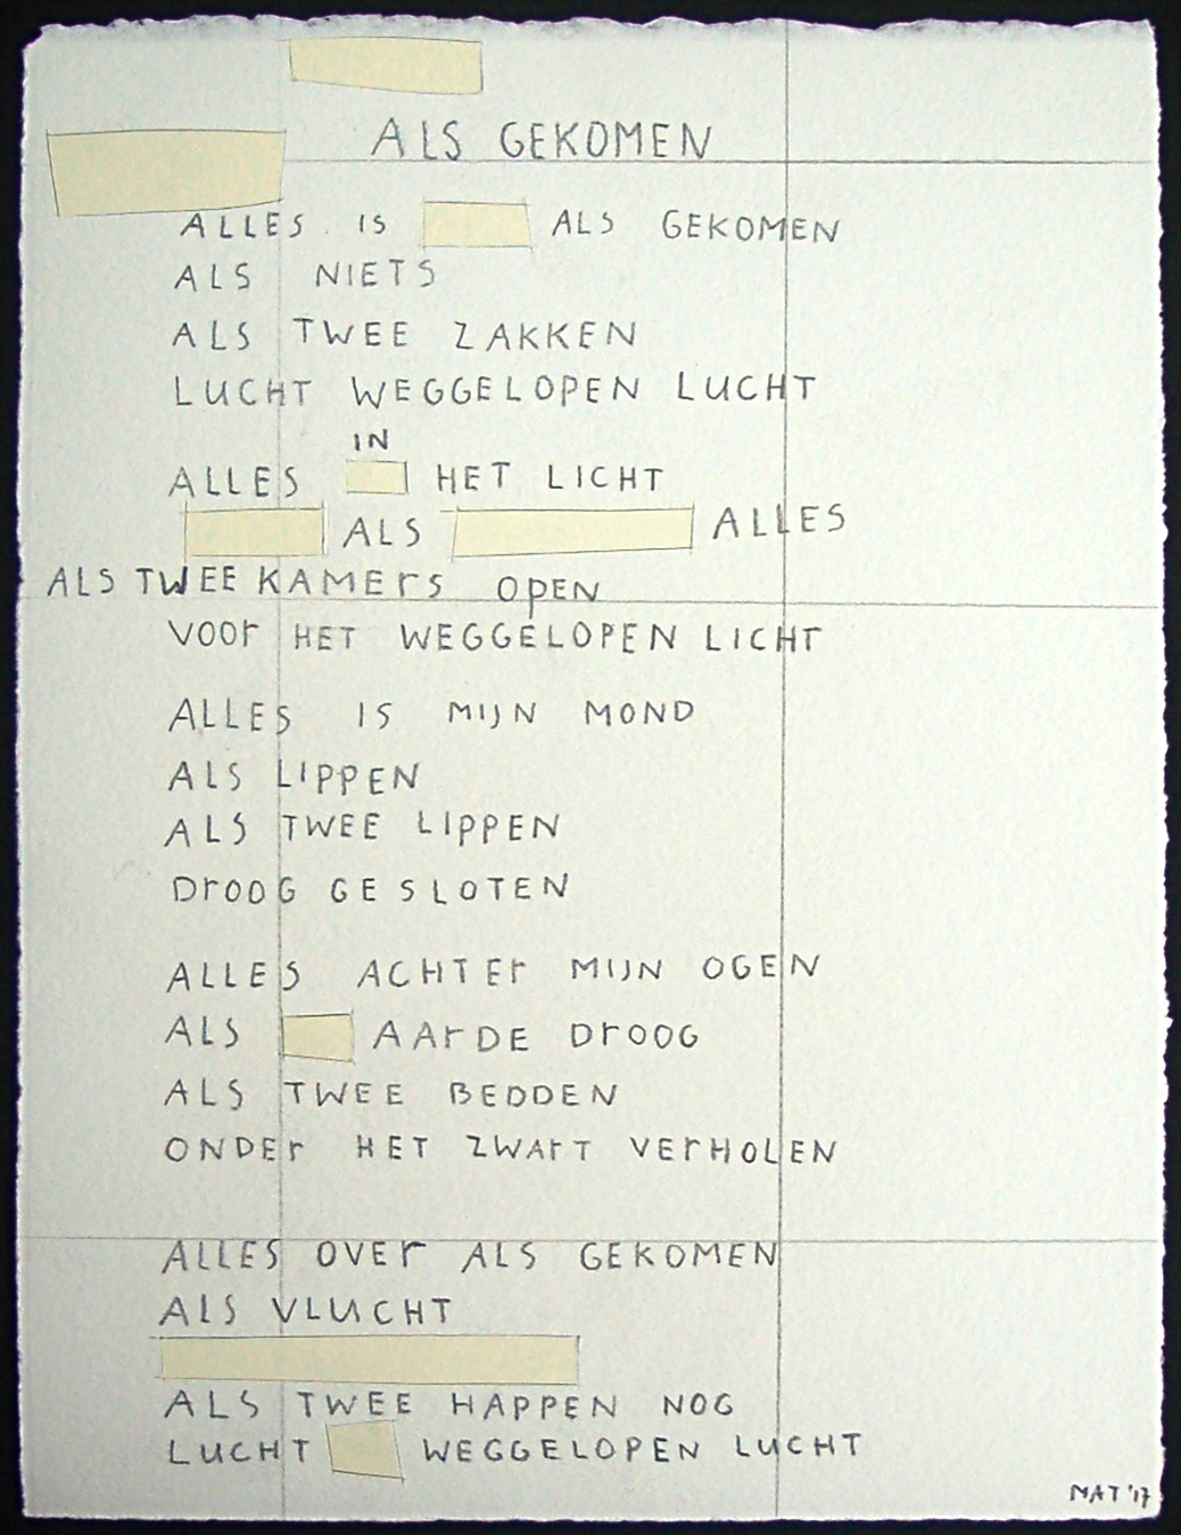 ALS GEKOMEN
ALLES IS ALS GEKOMEN
ALS NIETS
ALS TWEE ZAKKEN
LUCHT WEGGELOPEN LUCHT
IN
ALLES HET LICHT
ALS ALLES
ALS TWEE KAMErS OPEN
VOOr HET WEGGELOPEN LICHT
ALLES IS MIJN MOND
ALS LIPPEN
ALS TWEE LIPPEN
DrOOG GESLOTEN
ALLES ACHTEr MIJN OGEN
ALS AArDE DrOOG
ALS TWEE BEDDEN
ONDEr HET ZWArT VErHOLEN
ALLES OVEr ALS GEKOMEN
ALS VLUCHT
ALS TWEE HAPPEN NOG
LUCHT WEGGELOPEN LUCHT
MAT '17